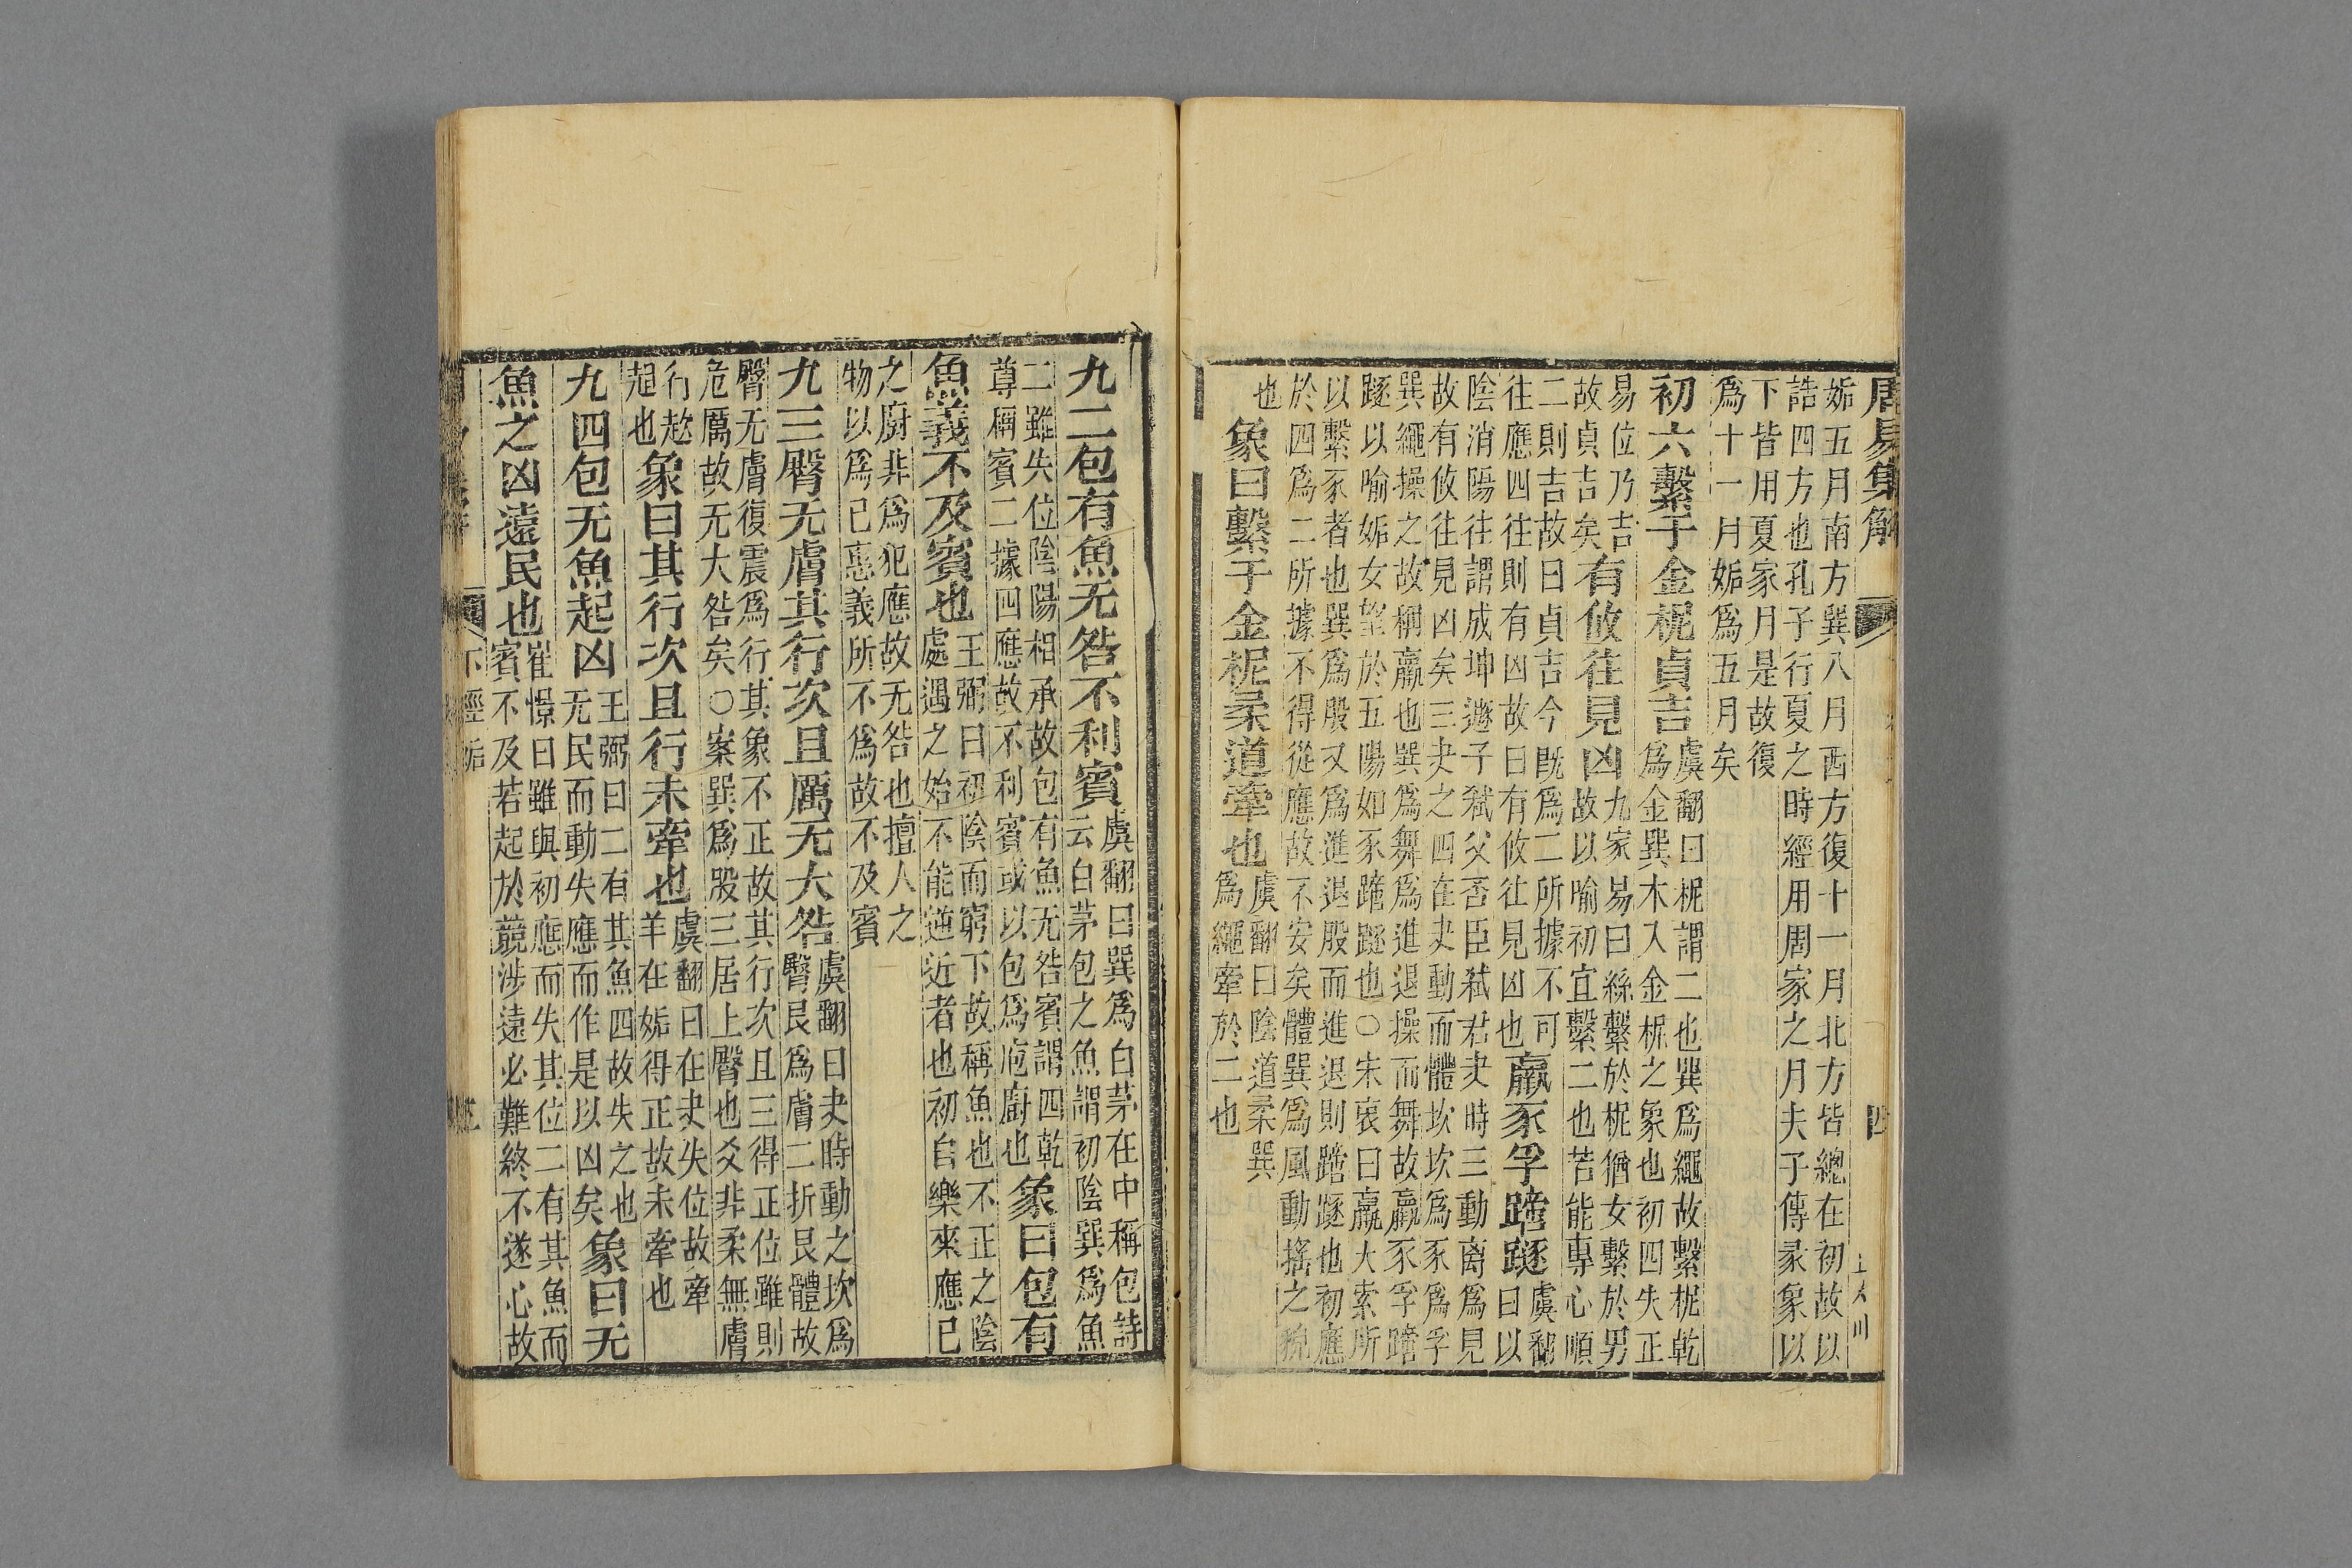 周易集解
姤五月南方巽八月西方復十一月北方皆總在初故以
誥四方也孔子行夏之時經用周家之月夫子傳彖象以
下皆用夏家月是故復
爲十一月姤爲五月矣
初六繫于金柅貞吉
虞翻曰柅謂二也巽爲繩故繫柅乾
爲金巽木入金柅之象也初四失正
易位乃吉
故貞吉矣
有攸往見凶
九家易曰絲繫於柅猶女繫於男
故以喻初宜繫二也苦能專心順
二則吉故曰貞吉今旣爲二所據不可
往應四往則有凶故曰有攸往見凶也
羸豕孚蹢躅
虞翻
曰以
陰消陽往謂成坤遯子弒父否臣弒君夬時三動离爲見
故有攸往見凶矣三夬之四在夬動而體坎坎爲豕爲孚
巽繩操之故稱羸也巽爲舞爲進退操而舞故羸豕孚蹢
躅以喻姤女望於五陽如豕蹢躅也○宋衷曰羸大索所
以繫豕者也巽爲股又爲進退股而進退則蹢躅也初應
於四爲二所據不得從應故不安矣體巽爲風動搖之貌
也
象曰繫于金柅柔道牽也
虞翻曰陰道柔巽
爲繩牽於二也
九二包有魚无咎不利賓
虞翻曰巽爲白茅在中稱包詩
云白茅包之魚謂初陰巽爲魚
二雖失位陰陽相承故包有魚无咎賓謂四乾
尊稱賓二據四應故不利賓或以包爲庖廚也
象曰包有
魚義不及賓也
王弼曰初陰而窮下故稱魚也不正之陰
處遇之始不能逆近者也初自樂來應己
之廚非爲犯應故无咎也擅人之
物以爲己惠義所不爲故不及賓
九三臀无膚其行次且厲无大咎
虞翻曰夬時動之坎爲
臀艮爲膚二折艮體故
臀无膚復震爲行其象不正故其行次且三得正位雖則
危厲故无大咎矣○案巽爲股三居上臀也爻非柔無膚
行趑
起也
象曰其行次且行未牽也
虞翻曰在夬失位故牽
羊在姤得正故未牽也
九四包无魚起凶
王弼曰二有其魚四故失之也
无民而動失應而作是以凶矣
象曰无
魚之凶遠民也
崔憬曰雖與初應而失其位二有其魚而
賓不及若起於競涉遠必難終不遂心故
下經 姤